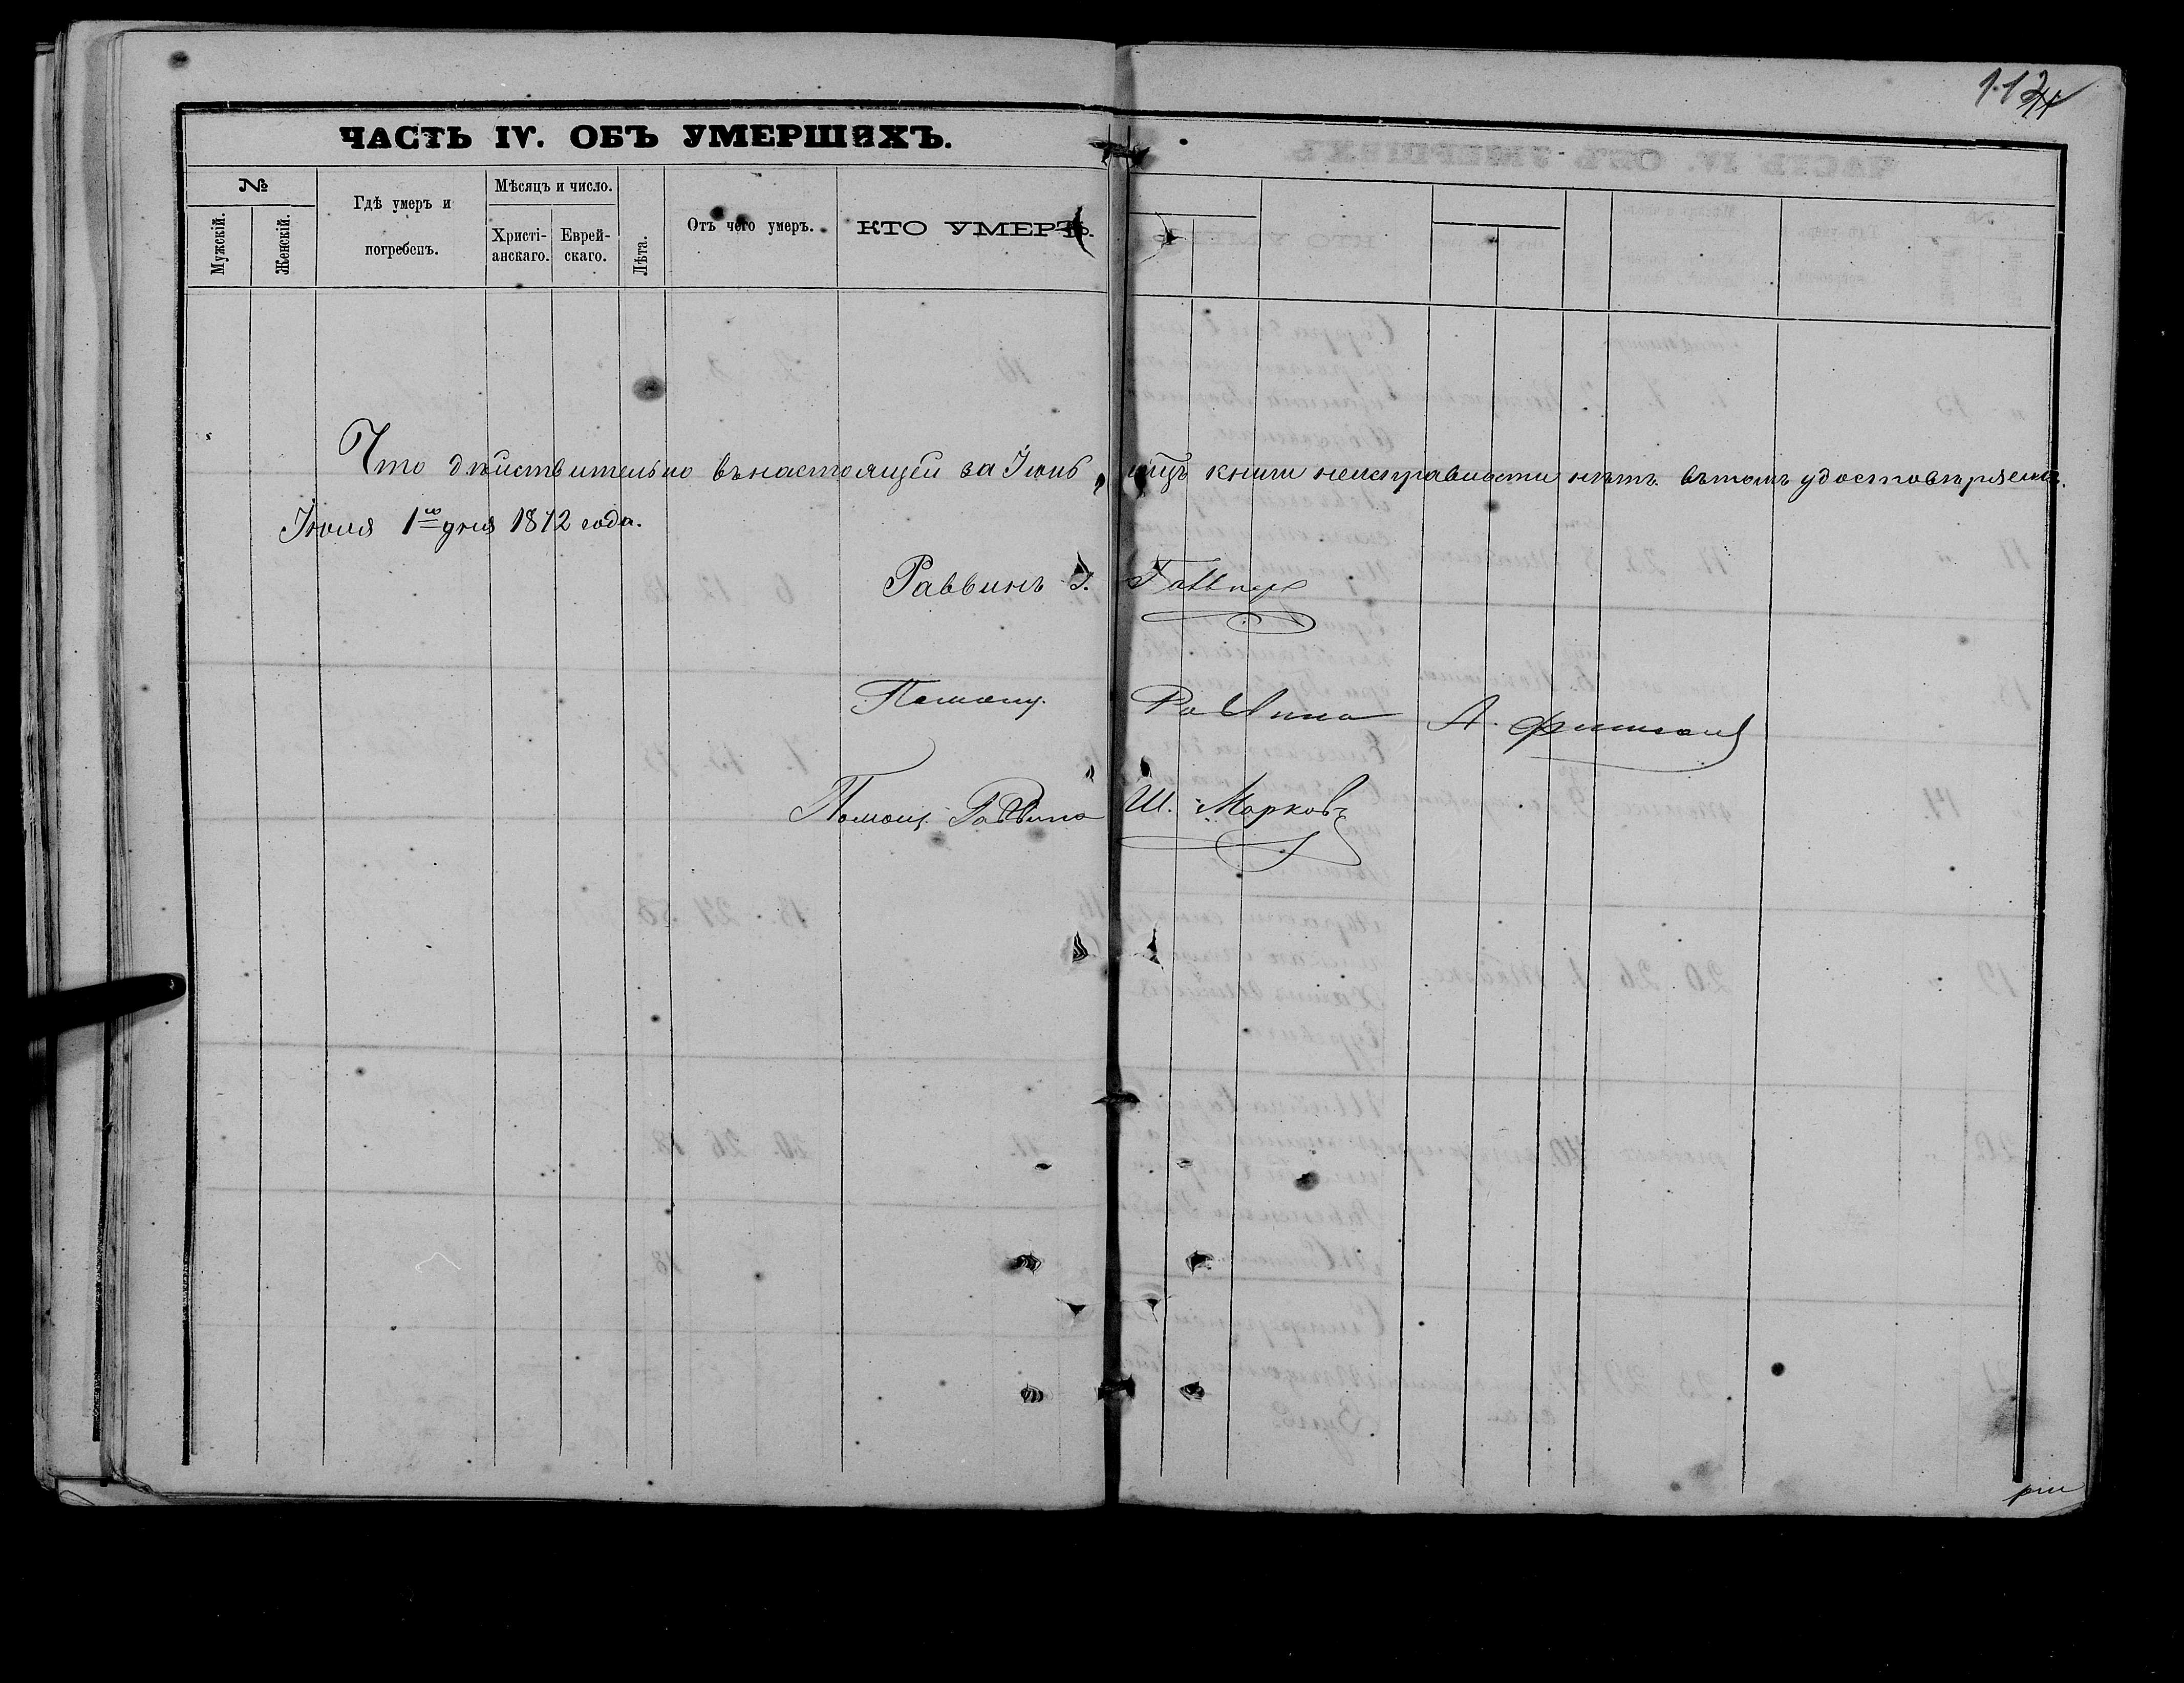 ЧАСТЬ IV. ОБЪ УМЕРШИХЪ.
№
Мужскій.
Женскій.
Гдѣ умеръ и
погребенъ.
Мѣсяцъ и число.
Христі-
анскаго.
Еврей-
скаго.
Лѣта.
Отъ чего умеръ.
КТО УМЕРЪ.
Что дѣйствительно въ настоящей за Іюнь мцъ книги неисправности нѣтъ въ томъ удостовѣряемъ.
Іюля 1го дня 1872 года.
Раввинъ
Помощ. Раввина А.
Помощ. Раввина Ш. Марковъ